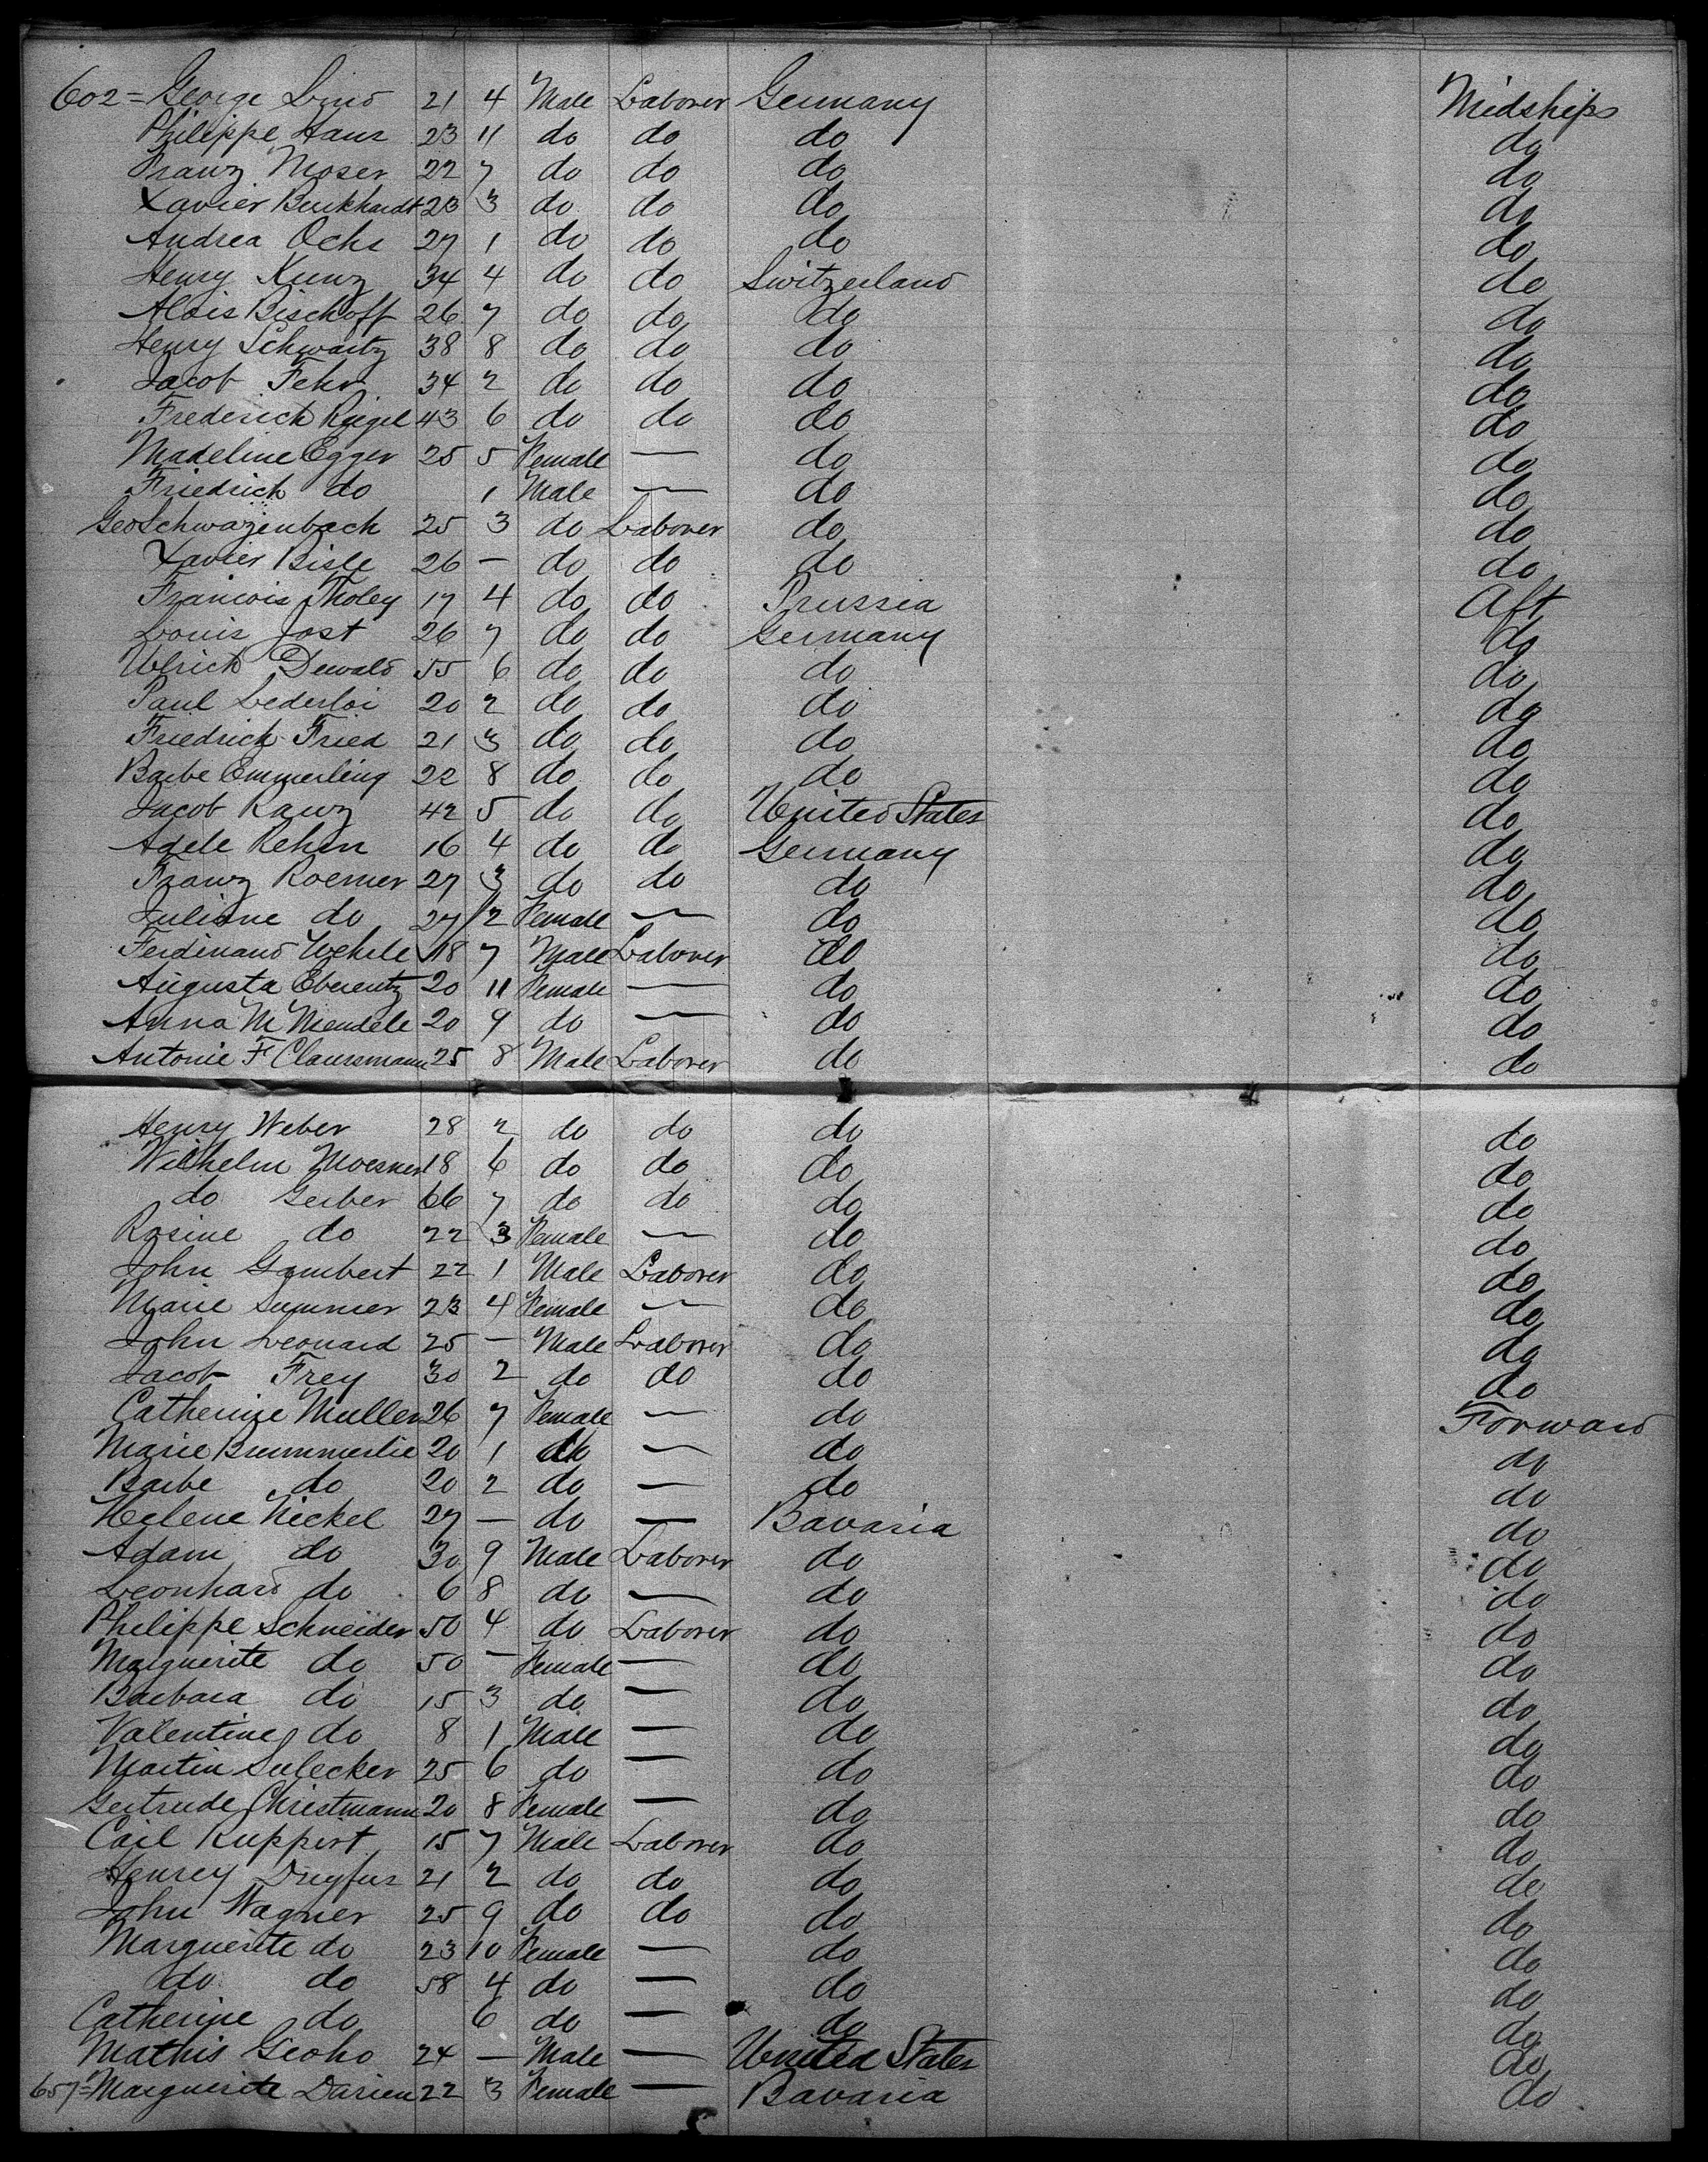 602 = George Lind 21 4 Male Laborer Germany Midships
Philippe Haus 23 11 do do do do
Franz Moser 22 7 do do do do
Xavier Burkhardt 23 3 do do do do
Andrea Ochs 27 1 do do do do
Henry Kunz 34 4 do do Switzerland do
Alois Bischoff 26 7 do do do do
Henry Schwartz 38 8 do do do do
Jacob Fehr 34 2 do do do do
Frederich Riegel 43 6 do do do do
Madeline Egger 25 5 Female — do do
Friedrich do 1 Male — do do
Geo Schwazenbach 25 3 do Laborer do do
Xavier Bisle 26 — do do do do
Francois Tholey 17 4 do do Prussia Aft
Louis Jost 26 7 do do Germany do
Ulrich Dewald 55 6 do do do do
Paul Lederloi 20 2 do do do do
Friedrich Fried 21 3 do do do do
Barbe Emmerling 22 8 do do do do
Jacob Ranz 42 5 do do United States do
Adele Rehm 16 4 do do Germany do
Franz Roemer 27 3 do do do do
Juliane do 27 2 Female — do do
Ferdinand Wehrle 18 7 Male Laborer do do
Augusta Eberentz 20 11 Female — do do
Anna M Mendele 20 9 do — do do
Antonie F Claussmann 25 8 Male Laborer do do
Henry Weber 28 2 do do do do
Wilhelm Moesner 18 6 do do do do
do Gerber 66 7 do do do do
Rosine do 22 3 Female — do do
John Gambert 22 1 Male Laborer do do
Marie Summer 23 4 Female — do do
John Leonard 25 — Male Laborer do do
Jacob Frey 30 2 do do do do
Catherine Muller 26 7 Female — do Forward
Marie Brummerlie 20 1 do — do do
Barbe do 20 2 do — do do
Helene Nickel 27 — do — Bavaria do
Adam do 30 9 Male Laborer do do
Leonhard do 6 8 do — do do
Philippe Schneider 50 4 do Laborer do do
Marguerite do 50 — Female — do do
Barbara do 15 3 do — do do
Valentine do 8 1 Male — do do
Martin Sulecker 25 6 do — do do
Gertrude Christmann 20 8 Female — do do
Carl Ruppert 15 7 Male Laborer do do
Henrey Dreyfus 21 2 do do do do
John Wagner 25 9 do do do do
Marguerite do 23 10 Female — do do
do do 58 4 do — do do
Catherine do 6 do — do do
Mathis Geoho 24 — Male — United States do
657 = Marguerite Darien 22 3 Female — Bavaria do